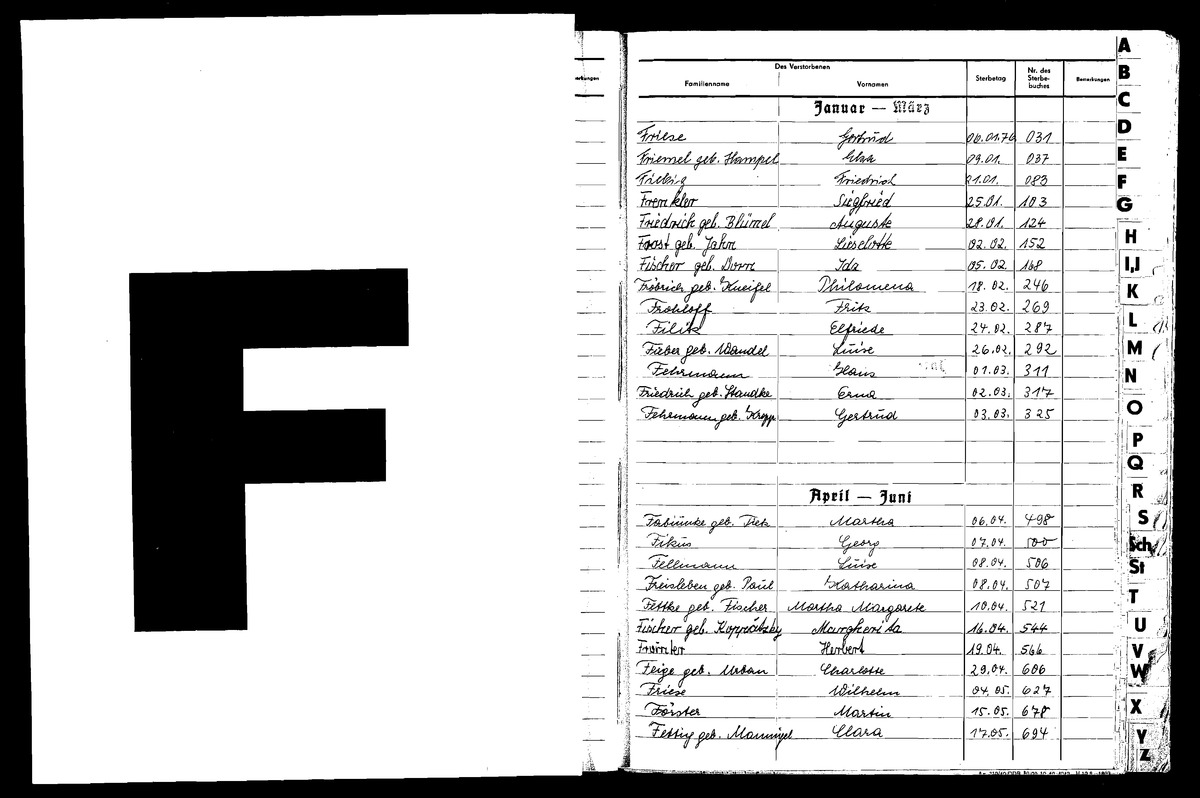 F
Des Verstorbenen
Familienname Vornamen Sterbetag Nr. des Sterbe-buches Bemerkungen
Januar — März
Friese Gertrud 06.01.76 031
Friemel geb. Hampel Elsa 09.01. 037
Friedrich 21.01. 083
Frenkler Siegfried 25.01. 103
Friedrich geb. Blümel Auguste 28.01. 124
Frost geb. Jahn Lieselotte 02.02. 152
Fischer geb. Dorn Ida 05.02. 168
Fröbrich geb. Kneifel Philomena 18.02. 246
Frohloff Fritz 23.02. 269
Filitz Elfriede 24.02. 287
Faber geb. Wandel Luise 26.02. 292
Fehrmann Hans 01.03. 311
Friedrich geb. Standke Erna 02.03. 317
Fehrmann geb. Gertrud 03.03. 325
April — Juni
geb. Tietz Martha 06.04. 498
Fikus Georg 07.04. 500
Fellmann Luise 08.04. 506
Freisleben geb. Paul Katharina 08.04. 507
Fettke geb. Fischer Martha Margarete 10.04. 521
Fischer geb. Margherita 16.04. 544
Herbert 19.04. 566
Feige geb. Urban Charlotte 29.04. 606
Friese Wilhelm 04.05. 627
Förster Martin 15.05. 678
Fetting geb. Clara 17.05. 694
A
B
C
D
E
F
G
H
I,J
K
L
M
N
O
P
Q
R
S
Sch
St
T
U
V
W
X
Y
Z